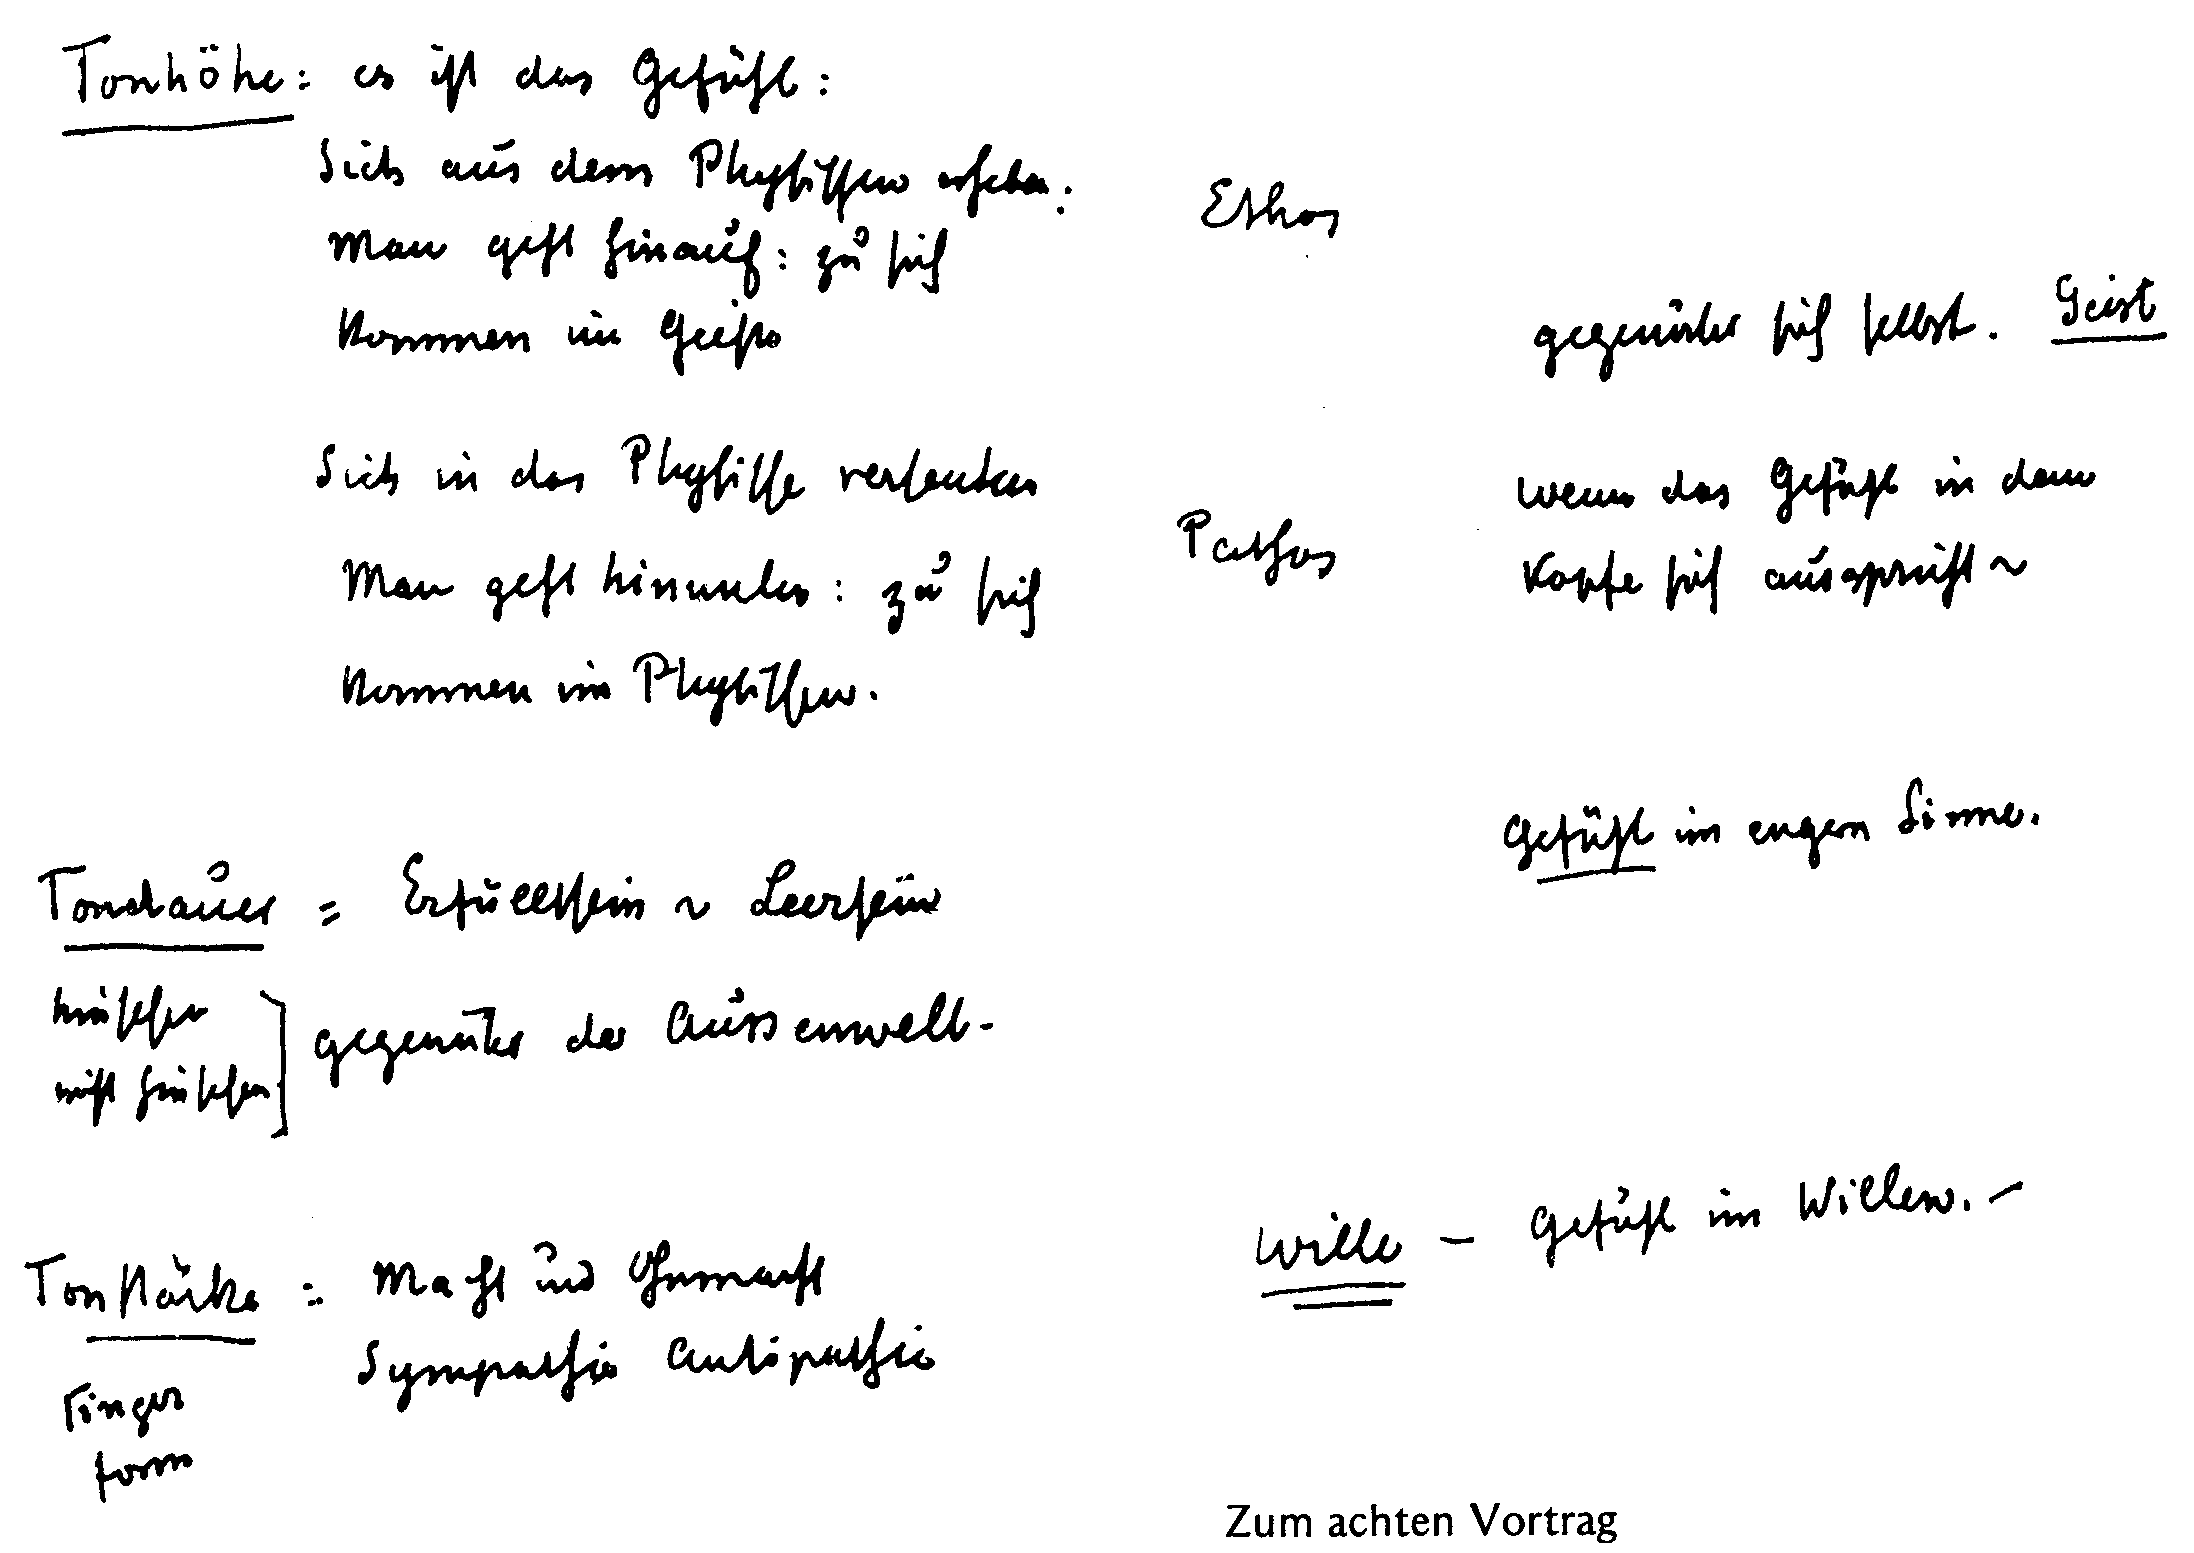 Tonhöhe: es ist das Gefühl:
Sich aus dem Physischen erheben:
Man geht hinauf: zu sich
Kommen im Geiste
Ethos
gegenüber sich selbst. Geist
Sich in das Physische versenken
Man geht hinunter: zu sich
Kommen im Physischen.
Pathos
wenn das Gefühl in dem
Kopfe sich ausspricht ~
Gefühl im engern Sinne.
Tondauer = Erfülltsein ~ Leersein
hinsehen
nicht hinsehen
gegenüber der Aussenwelt -
Wille – Gefühl im Willen. –
Tonstärke = Macht und Ohnmacht
Sympathie Antipathie
Finger
form
Zum achten Vortrag